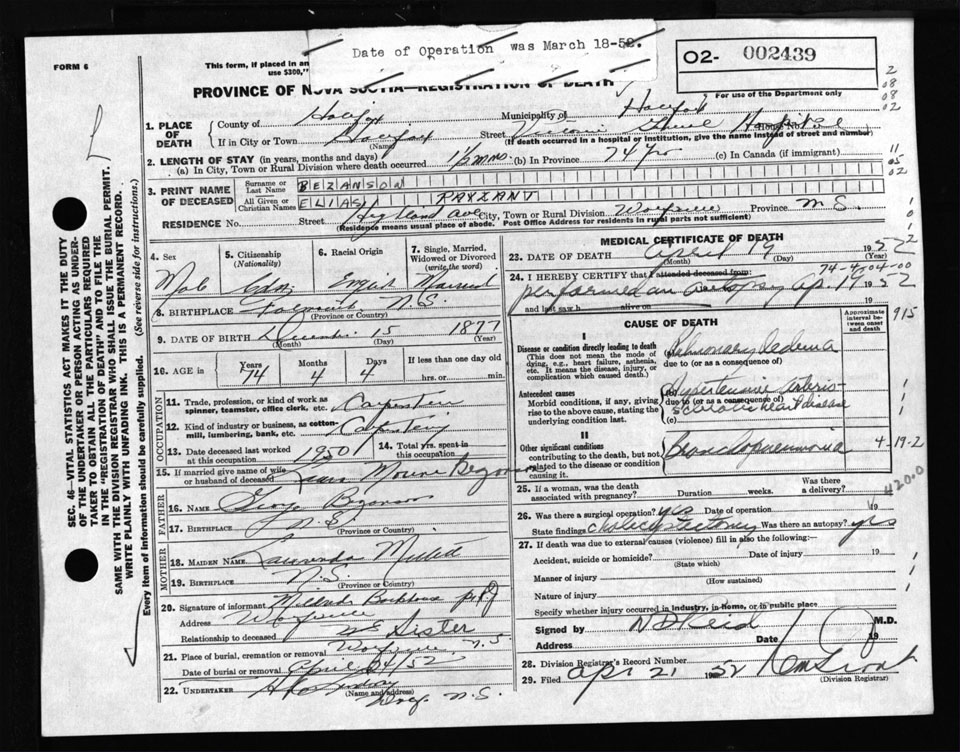 Date of Operation was March 18-52.
FORM 6
This form, if placed in an
use $300,"
02- 002439
For use of the Department only
PROVINCE OF NOVA SCOTIA—REGISTRATION OF DEATH
1. PLACE OF DEATH
County of Halifax
Municipality of Halifax
If in City or Town Halifax
(Name)
Street Victoria General Hospital House No.
(If death occurred in a hospital or institution, give the name instead of street and number)
2. LENGTH OF STAY (in years, months and days)
(a) In City, Town or Rural Division where death occurred 1 1/2 mos. (b) In Province 74 yrs (c) In Canada (if immigrant)
3. PRINT NAME OF DECEASED
Surname or Last Name BEZANSON
All Given or Christian Names ELIAS PAYZANT
RESIDENCE No. Street Highland Ave City, Town or Rural Division Wolfville Province N.S.
(Residence means usual place of abode. Post Office Address for residents in rural parts not sufficient)
4. Sex
Male
5. Citizenship
(Nationality)
Can.
6. Racial Origin
English
7. Single, Married, Widowed or Divorced
(write the word)
Married
8. BIRTHPLACE Falmouth N.S.
(Province or Country)
9. DATE OF BIRTH December 15 1877
(Month) (Day) (Year)
10. AGE in
Years 74 Months 4 Days 4
If less than one day old
hrs. or min.
OCCUPATION
11. Trade, profession, or kind of work as spinner, teamster, office clerk, etc. Carpenter
12. Kind of industry or business, as cotton-mill, lumbering, bank, etc. Carpentry
13. Date deceased last worked at this occupation 1950
14. Total yrs. spent in this occupation
15. If married give name of wife or husband of deceased Bezanson
FATHER
16. NAME George Bezanson
17. BIRTHPLACE N.S.
(Province or Country)
MOTHER
18. MAIDEN NAME Millett
19. BIRTHPLACE N.S.
(Province or Country)
20. Signature of informant
Address Wolfville
Relationship to deceased Sister
21. Place of burial, cremation or removal Wolfville N.S.
Date of burial or removal April 21/52
22. UNDERTAKER
(Name and address)
Wolf. N.S.
MEDICAL CERTIFICATE OF DEATH
23. DATE OF DEATH April 19 1952
(Month) (Day) (Year)
74-4-04-00
24. I HEREBY CERTIFY that I attended deceased from:
performed an autopsy Ap. 19 1952
and last saw h alive on 19
CAUSE OF DEATH
Approximate interval between onset and death
I
Disease or condition directly leading to death
(This does not mean the mode of dying, e.g., heart failure, asthenia, etc. It means the disease, injury, or complication which caused death.)
(a) Pulmonary Oedema
due to (or as a consequence of)
Antecedent causes
Morbid conditions, if any, giving rise to the above cause, stating the underlying condition last.
(b) Hypertensive arterio-
due to (or as a consequence of)
sclerotic heart disease
(c)
II
Other significant conditions
contributing to the death, but not related to the disease or condition causing it.
Bronchopneumonia
915
4-19-2
420.0
25. If a woman, was the death associated with pregnancy? Duration weeks. Was there a delivery?
26. Was there a surgical operation? yes Date of operation 19
State findings cholecystectomy Was there an autopsy? yes
27. If death was due to external causes (violence) fill in also the following:—
Accident, suicide or homicide? Date of injury 19
(State which)
Manner of injury
(How sustained)
Nature of injury
Specify whether injury occurred in industry, in home, or in public place
Signed by N D Reid M.D.
Address Date 19
28. Division Registrar's Record Number
29. Filed Apr 21 1952
(Division Registrar)
SEC. 46—VITAL STATISTICS ACT MAKES IT THE DUTY
OF THE UNDERTAKER OR PERSON ACTING AS UNDER-
TAKER TO OBTAIN ALL THE PARTICULARS REQUIRED
IN THE "REGISTRATION OF DEATH" AND TO FILE THE
SAME WITH THE DIVISION REGISTRAR WHO SHALL ISSUE THE BURIAL PERMIT.
WRITE PLAINLY WITH UNFADING INK. THIS IS A PERMANENT RECORD.
Every item of information should be carefully supplied. (See reverse side for instructions.)